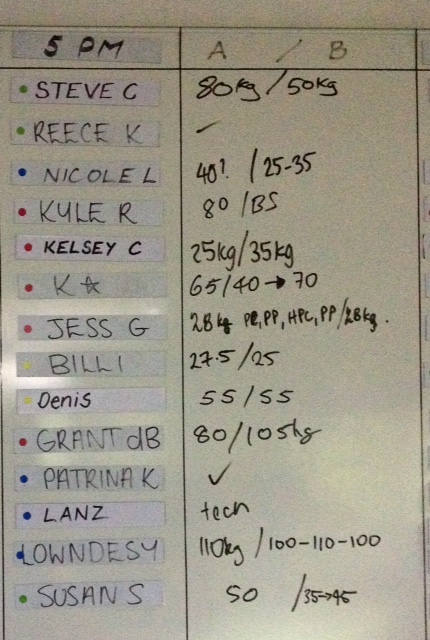 5 PM A / B
STEVE C 80kg / 50kg
REECE K ✓
NICOLE L 40! / 25-35
KYLE R 80 / BS
KELSEY C 25kg/35kg
K ☆ 65/40 → 70
JESS G 28kg PC, PP, HPC, PP/28kg.
BILLI 27.5/25
Denis 55/55
GRANT dB 80/105kg
PATRINA K ✓
LANZ tech
LOWNDESY 110kg / 100-110-100
SUSAN S 50 / 35→45